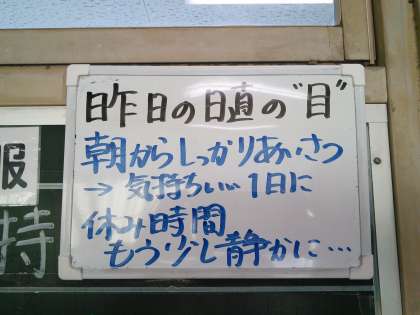 昨日の日直の"目"
朝からしっかりあいさつ
→ 気持ちいい 1日に
休み時間
もう少し静かに…
服
持